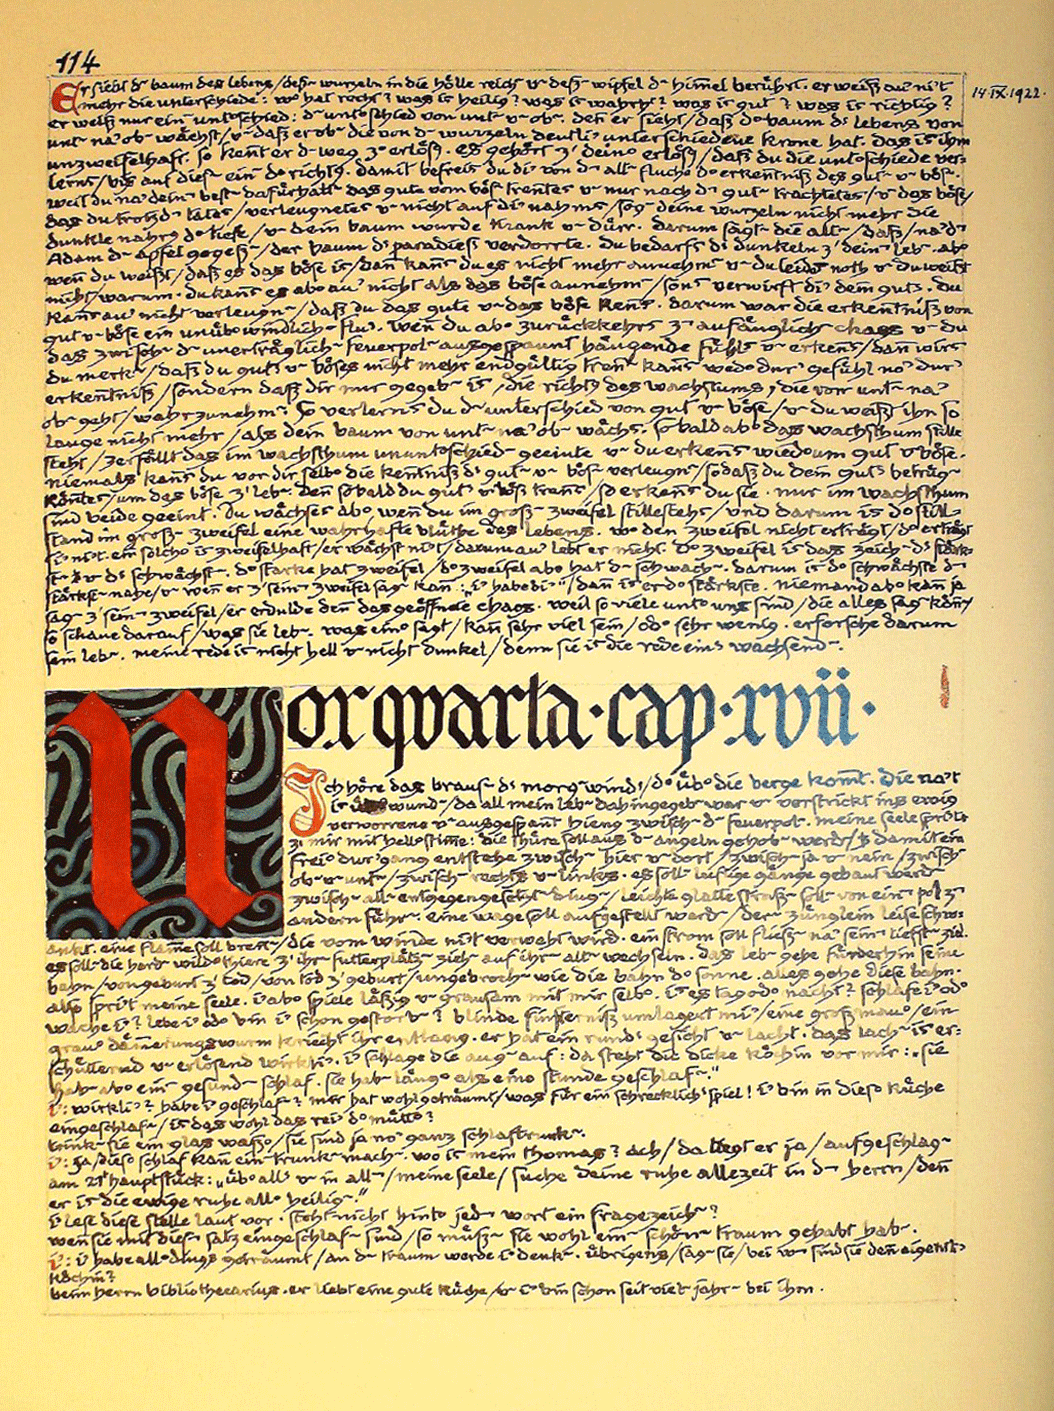 114
Er sieht dˉ baum des lebens/deßˉ wurzeln in die hölle reichˉ vˉ deßˉ wipfel dˉ him̄el berührt. er weiß au' ni't
mehr die unterschiede: wo hat recht? was is heilig? was is wahr? was is gut? was is richtig?
14 IX. 1922.
er weiß nur ein' unt'schied: dˉ unt'schied von unt' vˉ ob'. den̄ er sieht/daß d' baum ds lebens von
unt' na' ob' wächst/vˉ daß er ob' die von dˉ wurzeln deutli' unterschiedene krone hat. das is ihm
unzweifelhaft. so ken̄t er dˉ weg z' erlösg. es gehört z' deiner erlösg/daß du die unt'schiede ver-
lerns/bis auf diesˉ ein' d' richtg. damit befreis du di' von dˉ altˉ fluche d' erkentniß des gutˉ vˉ bösˉ.
weil du na' dein' bestˉ dafürhaltˉ das gute vom bösˉ trentes vˉ nur nach dˉ gutˉ trachtetes/vˉ das böse/
das du trotzdˉ tates/verleugnetes vˉ nicht auf di' nahms/sog deine wurzeln nicht mehr die
dunkle nahrg d' tiefe/vˉ dein baum wurde krank vˉ dürr. darum sagtˉ die altˉ/daß/na'dˉ
Adam dˉ apfel gegeßˉ/der baum ds paradieses verdorrte. du bedarfs ds dunkeln z' dein' lebˉ. ab'
wen̄ du weißt/daß es das böse is/dan̄ kan̄s du es nicht mehr annehmˉ vˉ du leides noth vˉ du weißt
nicht/warum. du kan̄s es ab' au' nicht als das böse annehmˉ/sons verwirft di' dein gutˉ. du
kan̄s au' nicht verleugnˉ/daß du das gute vˉ das böse ken̄s. darum war die erkentniß von
gut vˉ böse ein unüb'windlich' flu'. wen̄ du ab' zurückkehrs z' anfänglichˉ chaos vˉ du
das zwischˉ dˉ unerträglichˉ feuerpolˉ ausgespannt hängende fühls vˉ erkens/dan̄ wirs
du merkˉ/daß du gutˉ vˉ böses nicht mehr endgültig tren̄ˉ kan̄s wed' dur' gefühl no' dur'
erkentniß/sondern daß dir nur gegebˉ is/die richtg des wachstums/die von untˉ na'
ob' geht/wahrzunehmˉ. so verlerns du dˉ unterschied von gut vˉ böse/vˉ du weißt ihn so
lange nicht mehr/als dein baum von untˉ na' obˉ wächs. sobald ab' das wachsthum stille
steht/zerfällt das im wachsthum ununt'schiedˉ geeinte vˉ du erkens wiederum gut vˉ böse.
niemals kan̄s du vor dir selb' die kentniß ds gutˉ vˉ bösˉ verleugnˉ/sodaß du dein gutˉ betrügˉ
köntes/um des böse z' lebˉ. den̄ sobald du gutˉ vˉ böß tren̄s/so erkens du sie. nur im wachsthum
sind beide geeint. du wächses ab' wen̄ du im großˉ zweifel stillestehs/und darum is d' still-
stand im großˉ zweifel eine wahrhafte blüthe des lebens. wo den zweifel nicht erträgt/d' erträgt
si' ni't. ein solch' is zweifelhaft/er wächst ni't/darum au' lebt er nicht. d' zweifel is das zeichˉ ds stärk-
stˉ vˉ ds schwächstˉ. d' starke hat zweifel/d' zweifel ab' hat dˉ schwachˉ. darum is d' schwächste dˉ
stärkstˉ nahe/vˉ wen̄ er z' seinˉ zweifel sagˉ kan̄: „i' habe di'"/dan̄ is er d' stärkste. niemand ab' kan̄ ja
sagˉ z' seinˉ zweifel/er erdulde den̄ das geöffnete chaos. weil so viele unt' uns sind/die alles sagˉ kön̄ˉ/
so schaue darauf/was sie lebˉ. was ein' sagt/kan̄ sehr viel sein/od' sehr wenig. erforsche darum
sein lebˉ. meine rede is nicht hell vˉ nicht dunkel/denn sie is die rede eins wachsendˉ.
nox quarta · cap · xvii ·
Ich höre das brausˉ ds morgˉwinds/d' üb' die berge kom̄t. die na't
is üb'wundˉ/da all mein lebˉ dahingegebˉ war vˉ verstrickt ins ewig
verworrene vˉ ausgespan̄t hieng zwischˉ dˉ feuerpolˉ. meine seele spricht
z' mir mit hell' stim̄e: die thüre soll aus dˉ angeln gehobˉ werdˉ/daß damit ein
frei' dur'gang entstehe zwischˉ hier vˉ dort/zwischˉ ja vˉ nein/zwischˉ
obˉ vˉ untˉ/zwischˉ rechts vˉ links. es sollˉ luftige gänge gebaut werdˉ
zwischˉ allˉ entgegengesetztˉ dingˉ/leichte glatte straßˉ sollˉ von einˉ pol z'
andern führˉ. eine wage soll aufgestellt werdˉ/derˉ zünglein leise schw-
ankt. eine flam̄e soll bren̄ˉ/die vom winde ni't verweht wird. ein strom soll fließˉ na' seinˉ tiefstˉ ziel.
es sollˉ die herdˉ wild' thiere z' ihrˉ futterplätzˉ ziehˉ auf ihrˉ altˉ wechseln. das lebˉ gehe fürderhin seine
bahn/von geburt z' tod/von tod z' geburt/ungebrochˉ wie die bahn d' sonne. alles gehe diese bahn.
also spri't meine seele. i' ab' spiele läßig vˉ grausam mit mir selb'. is es tag od' nacht? schlafe i' od'
wache i'? lebe i' od' bin i' schon gestorbˉ? blinde finsterniß umlagert mi'/eine große mau'/ein
grau' däm̄erungswurm kriecht ihr entlang. er hat ein rundˉ gesicht vˉ lacht. das lachˉ is er-
schütternd vˉ erlösend wirkli'. i' schlage die augˉ auf: da steht die dicke köchin vor mir: „sie
habˉ ab' einˉ gesundˉ schlaf. sie habˉ läng' als eine stunde geschlafˉ."
i': wirkli'? habe i' geschlafˉ? mir hat wohl geträumt/was für ein schrecklichˉ spiel! i' bin in dieser küche
eingeschlafˉ/is das wohl das rei' d' mütter?
trinkˉ sie ein glas waßer/sie sind ja no' ganz schlaftrunkˉ.
i': ja/dieser schlaf kan̄ einˉ trunkˉ machˉ. wo is mein thomas? ach/da liegt er ja/aufgeschlagˉ
am 21tˉ hauptstück: „üb' allˉ vˉ in allˉ/meine seele/suche deine ruhe allezeit in dˉ herrn/den̄
er is die ewige ruhe all' heiligˉ."
i' lese diese stelle laut vor. steht nicht hint' jedˉ wort ein fragezeichˉ?
wen̄ sie mit diesˉ satz eingeschlafˉ sind/so müßˉ sie wohl einˉ schönˉ traum gehabt habˉ.
i': i' habe allˉdings geträumt/an dˉ traum werde i' denkˉ. übrigens/sagˉ sie/bei wˉ sind sie den̄ eigentli'
köchin?
beim herrn bibliothecarius. er liebt eine gute küche/vˉ i' bin schon seit vielˉ jahrˉ bei ihm.